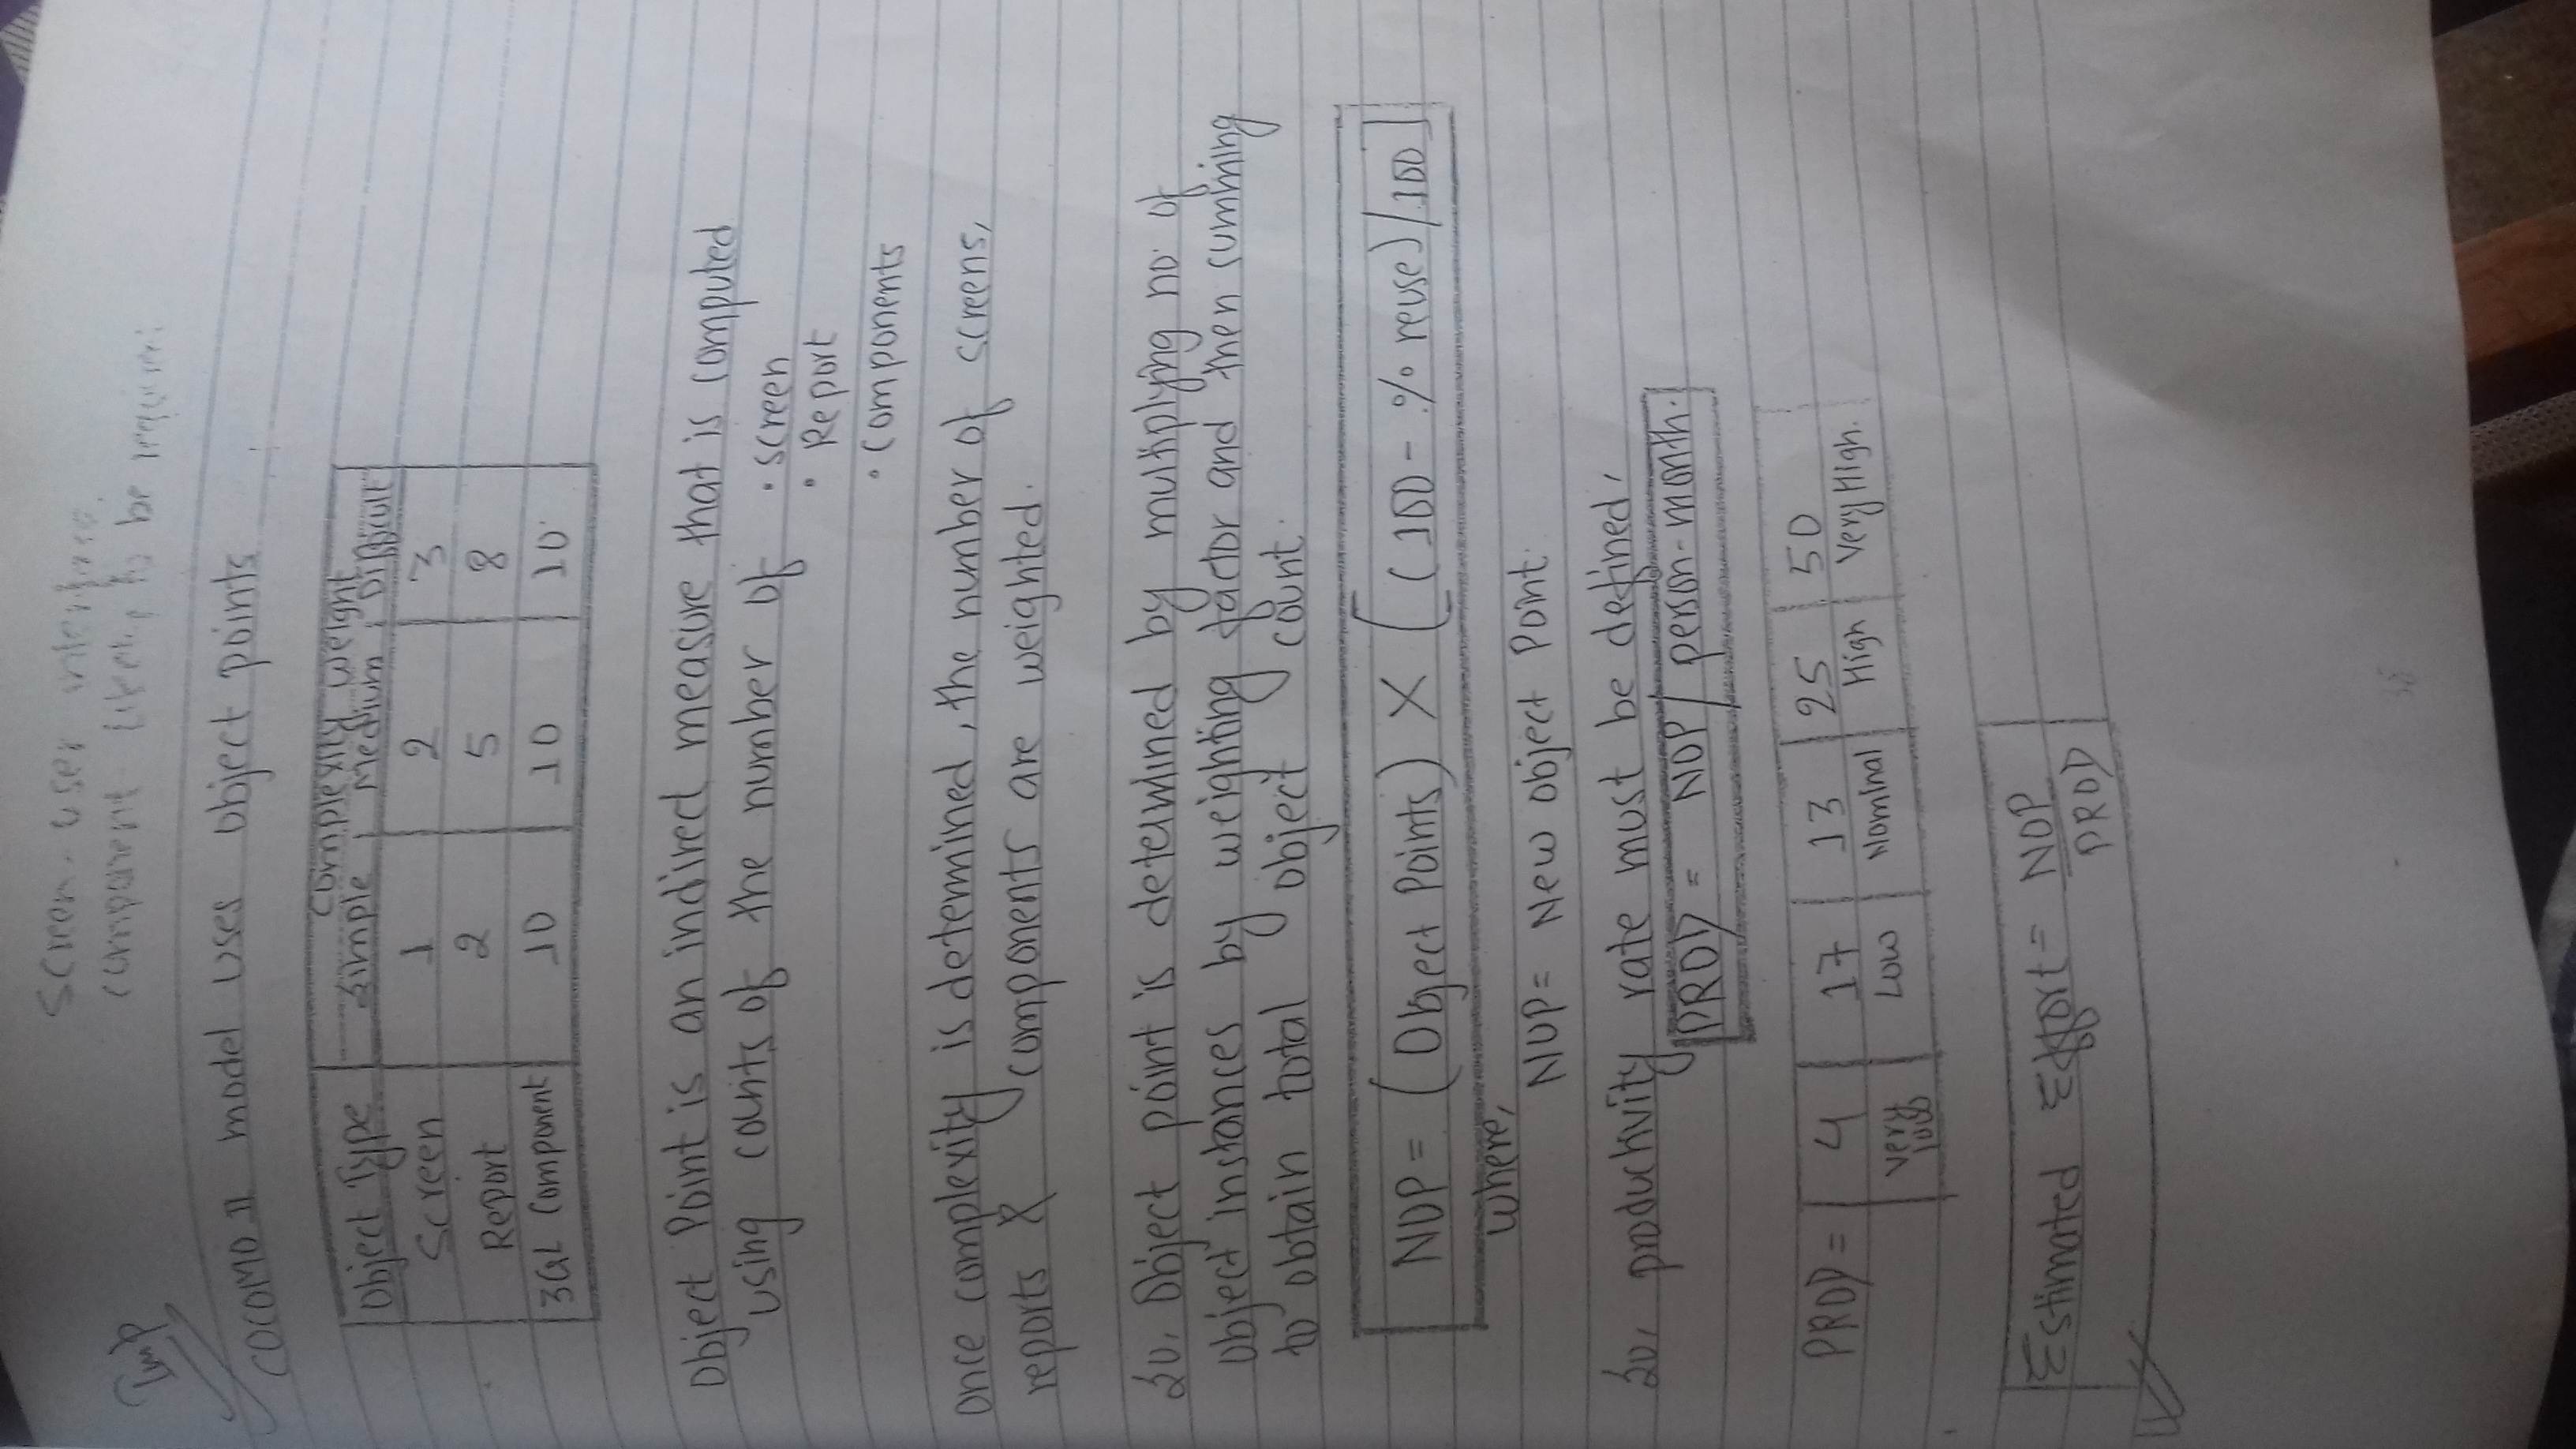 Screen. user interface.
component likely to be require
Imp
COCOMO II model uses object points
Complexity weight
Object Type Simple Medium Difficult
Screen 1 2 3
Report 2 5 8
3GL Component 10 10 10
Object Point is an indirect measure that is computed
using counts of the number of • screen
• Report
• Components
once complexity is determined, the number of screens,
reports & components are weighted.
So, Object point is determined by multiplying no. of
object instances by weighting factor and then summing
to obtain total object count.
NOP = (Object Points) X [(100 - % reuse)/100]
where,
NOP = New object Point.
So, productivity rate must be defined,
PROD = NOP/ person-month.
PROD = 4 17 13 25 50
very low Low Nominal High Very High.
Estimated Effort = NOP
PROD